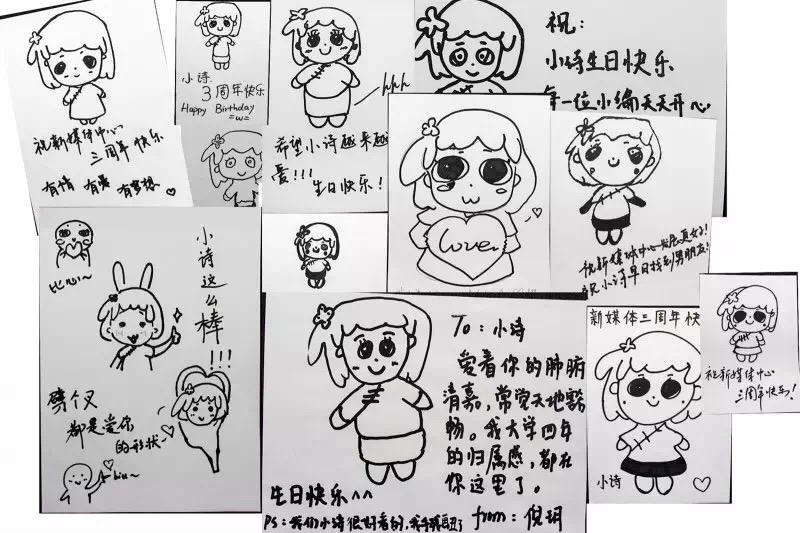 祝新媒体中心
三周年快乐
有情 有爱 有梦想
小诗
3周年快乐
Happy Birthday
=w=
希望小诗越来越
爱!!!
生日快乐!
hhh
祝:
小诗生日快乐
每一位小编天天开心
Love
祝新媒体中心发展更好!
祝小诗早日找到男朋友!
比心~
小诗这么棒!!!
劈个叉
都是爱你
的形状
biu~
To:小诗
爱着你的肺腑
清嘉,常觉天地豁
畅。我大学四年
的归属感,都在
你这里了。
from:倪玥
生日快乐^^
PS:我们小诗很好看的,我手残画丑了
新媒体三周年快
小诗
祝新媒体中心
三周年快乐!